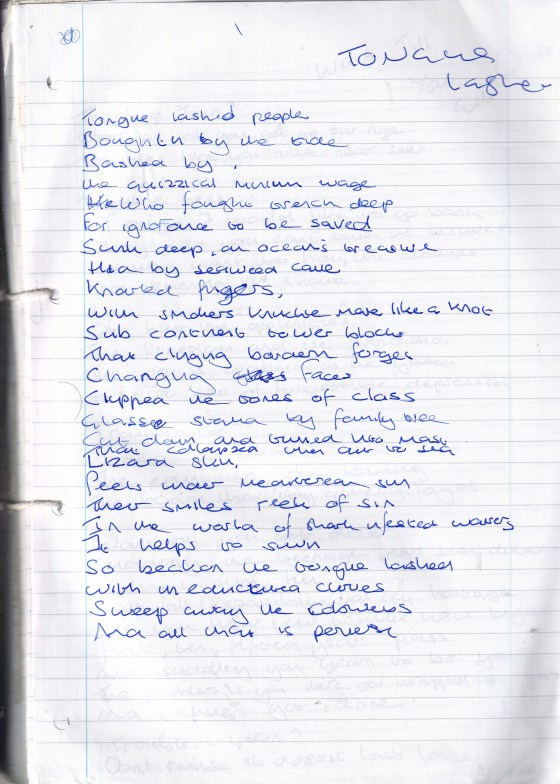 Tongue
Lasher
Tongue lashed people
Bought by the
Bashed by,
the quizzical minimum wage
He Who fought trench deep
For ignorance to be saved
Sunk deep, an ocean's treasure
Hid by seaweed cave
Knarled fingers,
With smokers knuckle more like a knot
Sub continent tower blocks
That clinging forget
Changing faces
Clipped the tones of class
Glasses by family tree
Cut down and turned into mast
That collapsed when out to sea
Lizard skin,
Peels under sun
Their smiles reek of sin
In the world of shark infested waters
It helps to swim
So beckon the tongue lashed
With cloves
Sweep away the
And all that is perverse